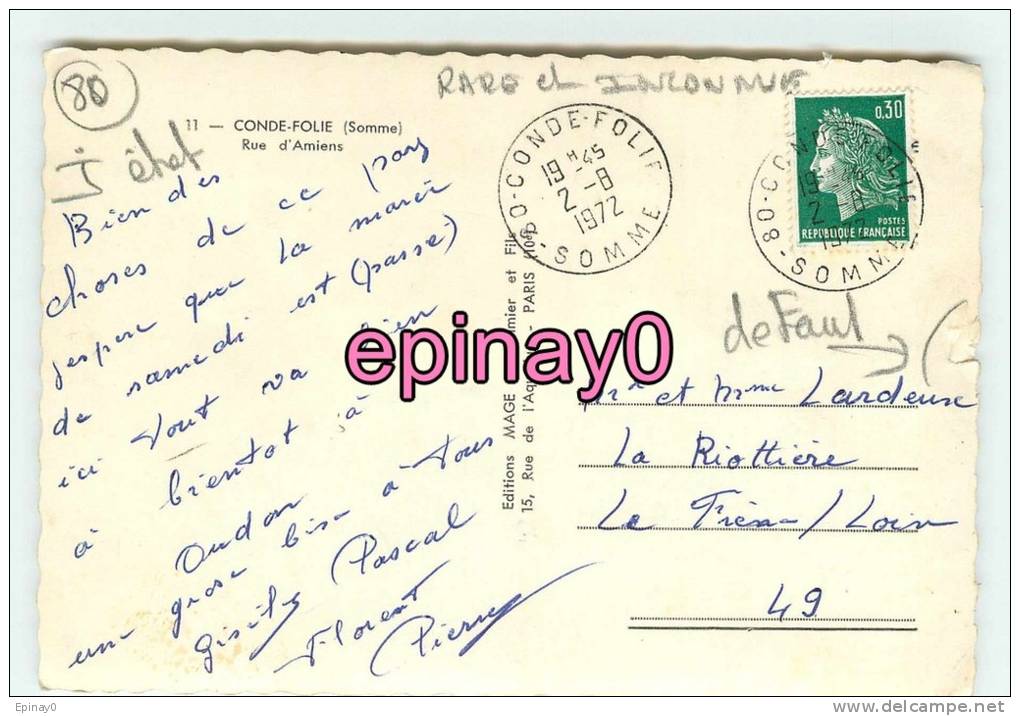 80
RARE et INCONNUE
11 — CONDE-FOLIE (Somme)
Rue d'Amiens
J état
80-CONDE-FOLIE
19 H -45
2 -8
1972
-SOMME
0,30
POSTES
REPUBLIQUE FRANÇAISE
Bien des
choses de ce pays
jespere que la marié
de samedi est (passe)
ici tout va bien
à bientot à
Oudon
une grose bise à tous
Gisèle Pascal
Florent
Pierre
epinay0
Editions MAGE
15, Rue de l'Aqu - PARIS (10e)
defaut
Mr et Mme Lardeuse
La Riottière
Le Loire
49
Epinay0
http://www.delcampe.net